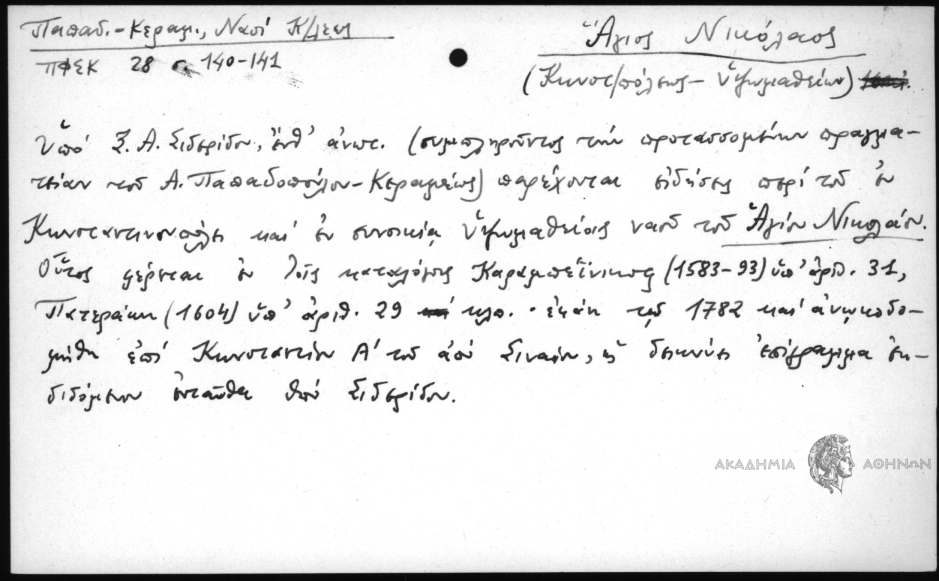 Παπαδ.-Κεραμ., Ναοί Κ/λεως
Ἅγιος Νικόλαος
ΠΦΣΚ 28 σ. 140-141
(Κωνστ/πόλεως - Ὑψωμαθείων)
Ὑπό Ξ. Α. Σιδερίδου, ἔνθ' ἀνωτ. (συμπληροῦντος τήν προτασσομένην πραγμα-
τείαν τοῦ Α. Παπαδοπούλου-Κεραμέως) παρέχονται εἰδήσεις περί τοῦ ἐν
Κωνσταντινουπόλει καί ἐν συνοικίᾳ Ὑψωμαθείοις ναοῦ τοῦ Ἁγίου Νικολάου.
Οὗτος φέρεται ἐν τοῖς καταλόγοις Καραμπεΐνικωφ (1583-93) ὑπ' ἀριθ. 31,
Πατεράκη (1604) ὑπ' ἀριθ. 29 κλπ. · ἐκάη τῷ 1782 καί ἀνῳκοδο-
μήθη ἐπί Κωνσταντίου Α' τοῦ ἀπό Σιναίου, ὡς δεικνύει ἐπίγραμμα ἐκ-
διδόμενον ἐνταῦθα ὑπό Σιδερίδου.
ΑΚΑΔΗΜΙΑ ΑΘΗΝΩΝ